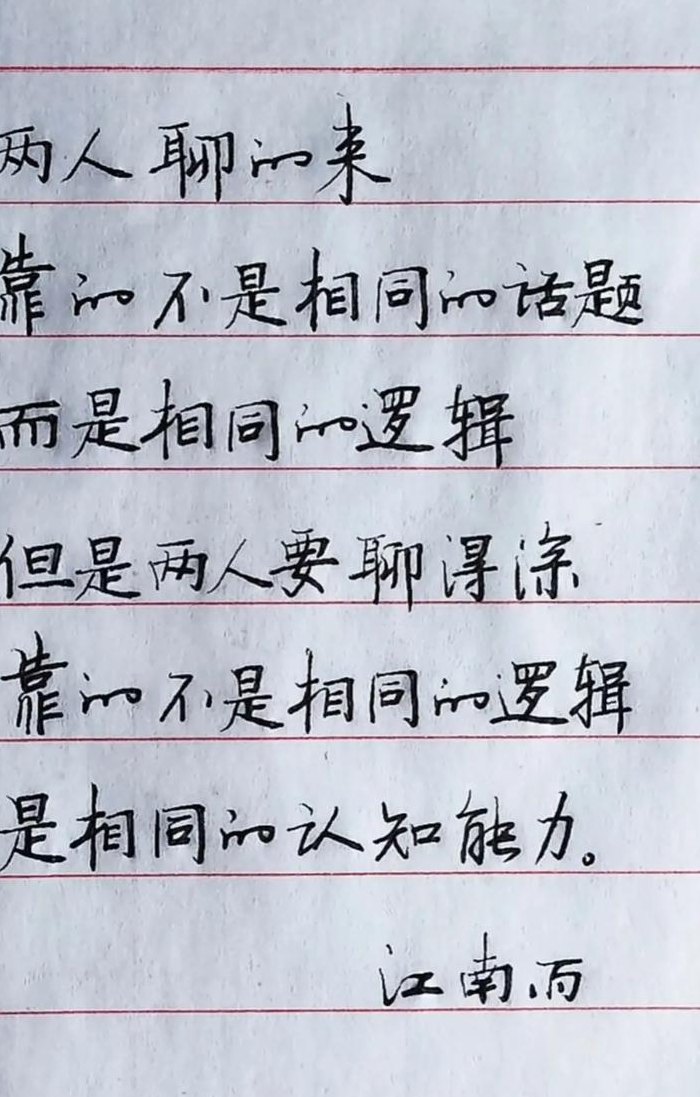 两人聊的来
靠的不是相同的话题
而是相同的逻辑
但是两人要聊得深
靠的不是相同的逻辑
是相同的认知能力。
江南雨